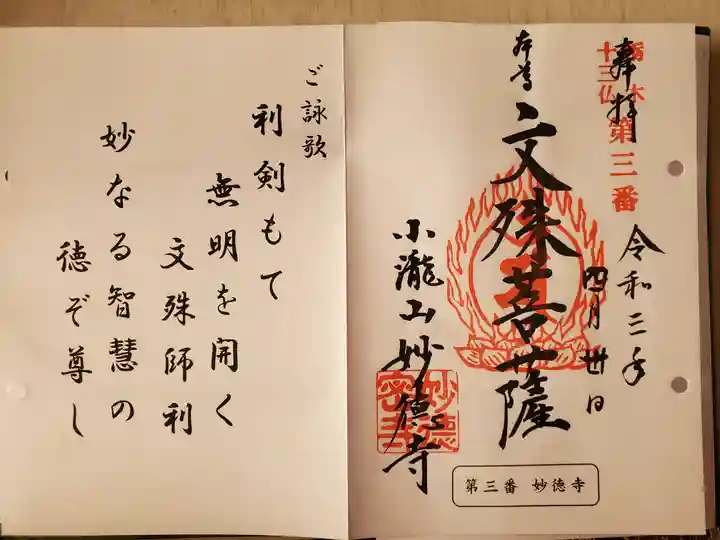 栃木
十三仏
第三番
奉拝
令和三年
四月卅日
本尊
文殊菩薩
小瀧山妙徳寺
妙徳
密寺
第三番 妙徳寺
ご詠歌
利剣もて
無明を開く
文殊師利
妙なる智慧の
徳ぞ尊し